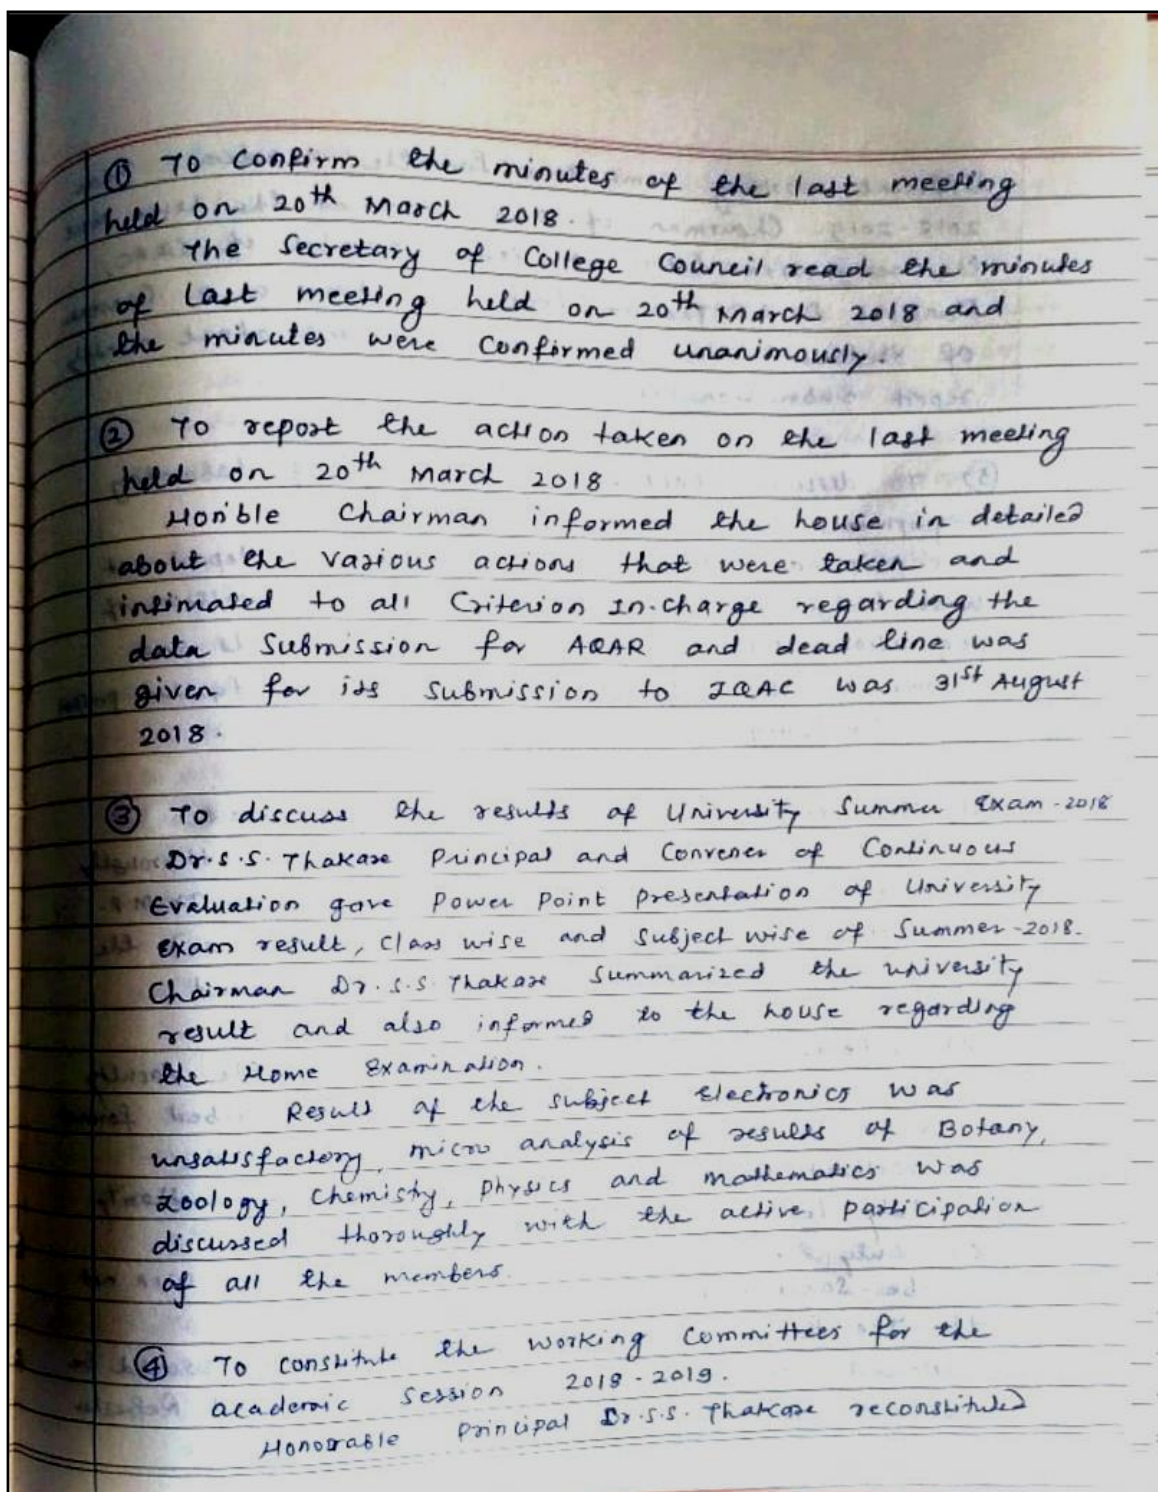 ① To Confirm the minutes of the last meeting
held on 20th March 2018.
The Secretary of College Council read the minutes
of Last meeting held on 20th March 2018 and
the minutes were Confirmed unanimously.
② To report the action taken on the last meeting
held on 20th March 2018
Hon'ble Chairman informed the house in detailed
about the various actions that were taken and
intimated to all Criterion In-charge regarding the
data Submission for AQAR and dead line was
given for its submission to IQAC was 31st August
2018.
③ To discuss the results of University Summer Exam-2018
Dr.S.S. Thakare Principal and Convener of Continuous
Evaluation gave Power Point presentation of University
Exam result, Class wise and Subject wise of Summer-2018.
Chairman Dr.S.S. Thakare Summarized the university
result and also informed to the house regarding
the Home Examination.
Result of the subject Electronics was
unsatisfactory, micro analysis of results of Botany,
Zoology, Chemistry, Physics and mathematics was
discussed thoroughly with the active participation
of all the members.
④ To constitute the working Committees for the
academic Session 2018-2019.
Honourable Principal Dr.S.S. Thakare reconstituted